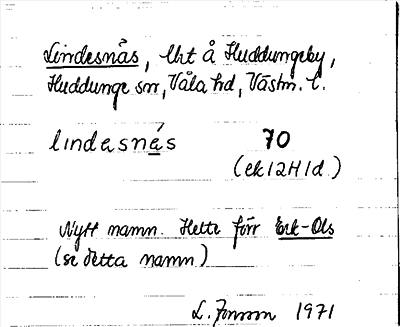 Lindesnås, lht å Huddungeby,
Huddunge sn, Våla hd, Västm. l.
lindesnås 70
(ek 12H1d.)
Nytt namn. Hette förr Erk-Ols
(se detta namn)
L. Jonsson 1971